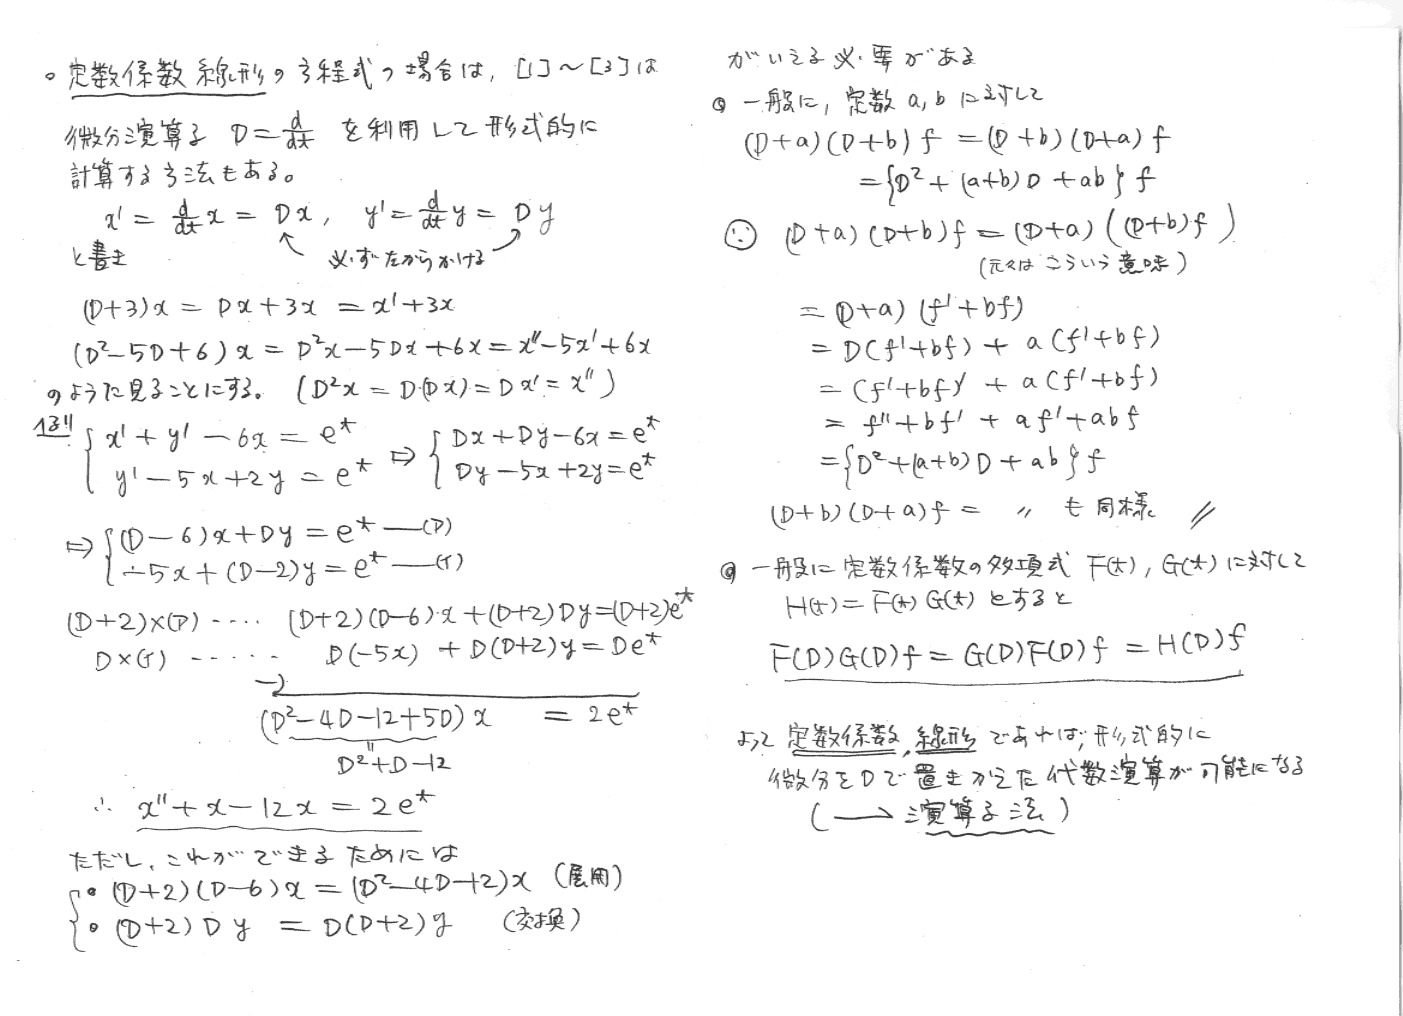 ○ 定数係数線形の方程式の場合は, [1]～[3]は
微分演算子 D = d/dt を利用して形式的に
計算する方法もある。
x' = d/dt x = Dx, y' = d/dt y = Dy
と書き
必ず左からかける
(D+3)x = Dx+3x = x'+3x
(D²-5D+6)x = D²x-5Dx+6x = x''-5x'+6x
のように見ることにする。 (D²x = D(Dx) = Dx' = x'')
例 { x'+y'-6x = e^t ⇔ { Dx+Dy-6x = e^t
y'-5x+2y = e^t Dy-5x+2y = e^t
⇔ { (D-6)x+Dy = e^t —(ア)
-5x+(D-2)y = e^t —(イ)
(D+2)×(ア) ···· (D+2)(D-6)x+(D+2)Dy = (D+2)e^t
D×(イ) ····· D(-5x) + D(D+2)y = De^t
-)
(D²-4D-12+5D)x = 2e^t
"
D²+D-12
∴ x''+x-12x = 2e^t
ただし, これができるためには
{ • (D+2)(D-6)x = (D²-4D-12)x (展開)
• (D+2)Dy = D(D+2)y (交換)
がいえる必要がある
◎ 一般に, 定数 a, b に対して
(D+a)(D+b)f = (D+b)(D+a)f
= {D²+(a+b)D+ab}f
∵ (D+a)(D+b)f = (D+a)((D+b)f)
(元々はこういう意味)
= (D+a)(f'+bf)
= D(f'+bf) + a(f'+bf)
= (f'+bf)' + a(f'+bf)
= f''+bf' + af'+abf
= {D²+(a+b)D+ab}f
(D+b)(D+a)f = 〃 も同様 //
◎ 一般に定数係数の多項式 F(t), G(t) に対して
H(t) = F(t)G(t) とすると
F(D)G(D)f = G(D)F(D)f = H(D)f
よって 定数係数, 線形 であれば, 形式的に
微分をDで置きかえた代数演算が可能になる
(→ 演算子法)